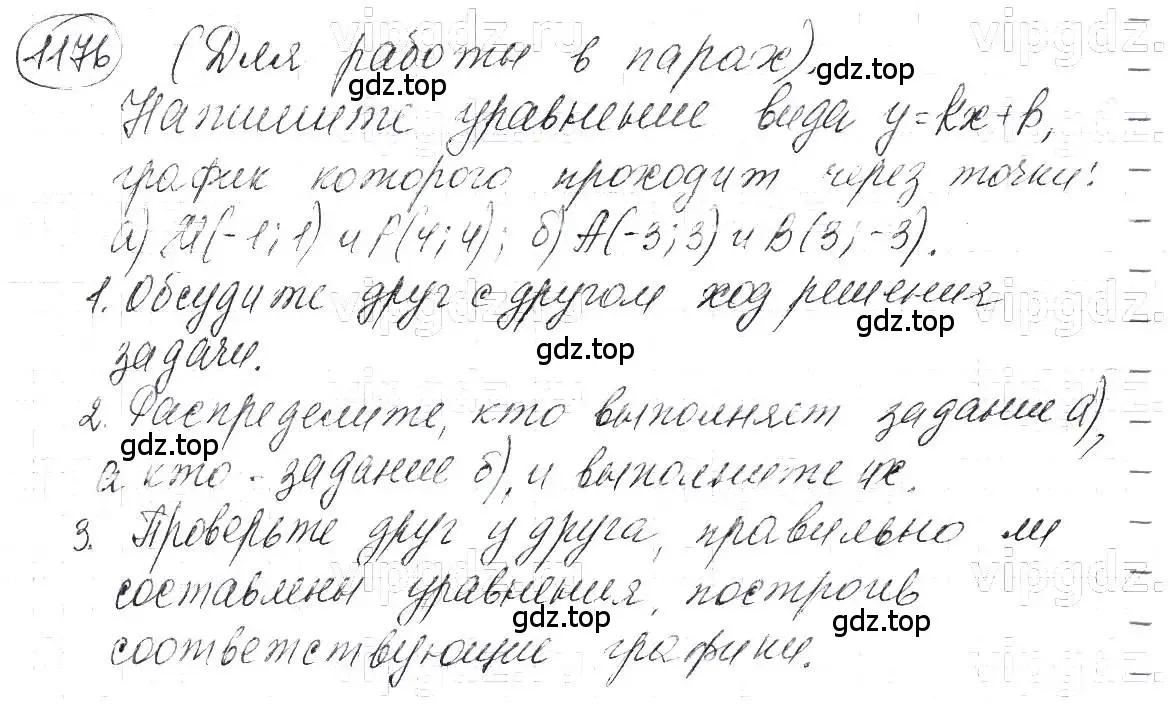 1176 (Для работы в парах).
Напишите уравнение вида y=kx+b,
график которого проходит через точки:
а) M(-1; 1) и P(4; 4); б) A(-3; 3) и B(3; -3).
1. Обсудите друг с другом ход решения
задачи.
2. Распределите, кто выполняет задание а),
а кто - задание б), и выполните их.
3. Проверьте друг у друга, правильно ли
составлены уравнения, построив
соответствующие графики.
vipgdz.ru
gdz.top
gdz.top
gdz.top
gdz.top
gdz.top
gdz.top
gdz.top